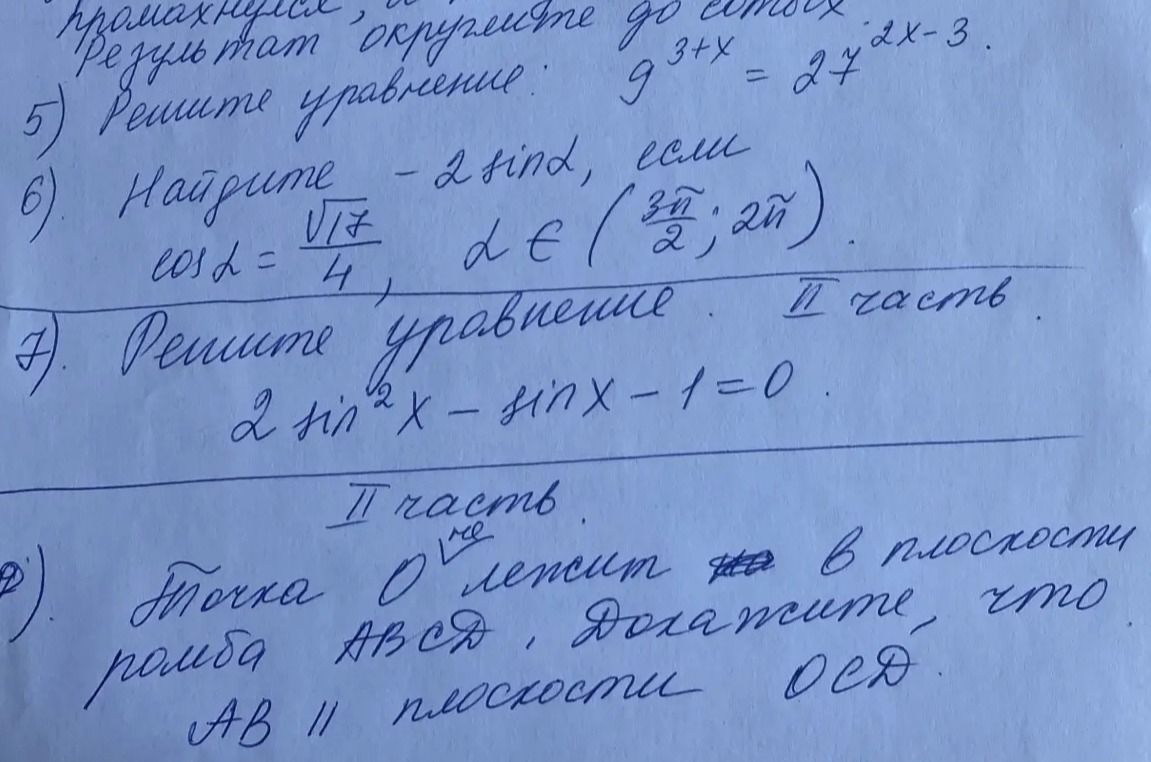 промахнулся,
Результат округлите до сотых.
5) Решите уравнение: 9^{3+x} = 27^{2x-3}.
6). Найдите -2 sinα, если
cosα = √17/4, α ∈ (3π/2; 2π).
7). Решите уравнение. II часть.
2 sin²x - sinx - 1 = 0.
II часть.
). Точка О не лежит в плоскости
ромба ABCD. Докажите, что
AB || плоскости OCD.